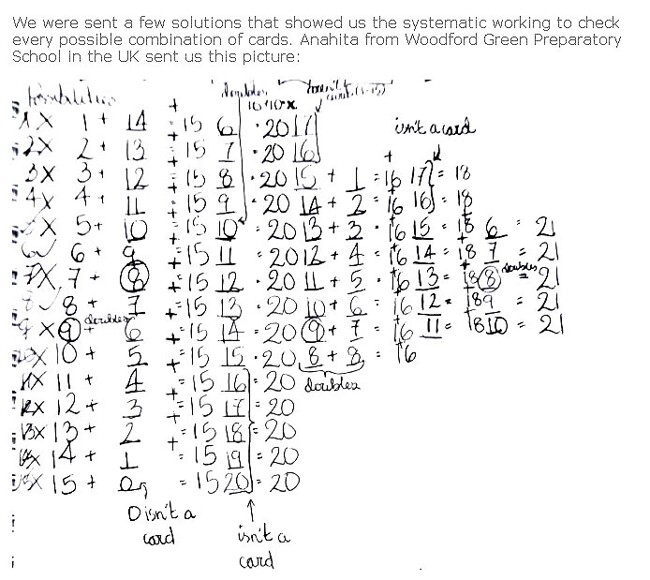 We were sent a few solutions that showed us the systematic working to check
every possible combination of cards. Anahita from Woodford Green Preparatory
School in the UK sent us this picture:
Possibilities doubles
isn't a card
1X 1 + 14 = 15 6 · 20 17
2X 2 + 13 = 15 7 · 20 16
3X 3 + 12 = 15 8 · 20 15 + 1 = 16 17 = 18
4X 4 + 11 = 15 9 · 20 14 + 2 = 16 16 = 18
X 5 + 10 = 15 10 · 20 13 + 3 · 16 15 = 18 6 = 21
6 + 9 = 15 11 = 20 12 + 4 = 16 14 = 18 7 = 21
7X 7 + 8 = 15 12 · 20 11 + 5 · 16 13 = 18 8 doubles = 21
8 + 7 = 15 13 · 20 10 + 6 = 16 12 = 18 9 = 21
X 9 doubles + 6 = 15 14 · 20 9 + 7 = 16 11 = 18 10 = 21
X 10 + 5 = 15 15 · 20 8 + 8 = 16
11X 11 + 4 = 15 16 = 20 doubles
12X 12 + 3 = 15 17 = 20
13X 13 + 2 = 15 18 = 20
X 14 + 1 = 15 19 = 20
X 15 + 0 = 15 20 = 20
0 isn't a
card
isn't a
card